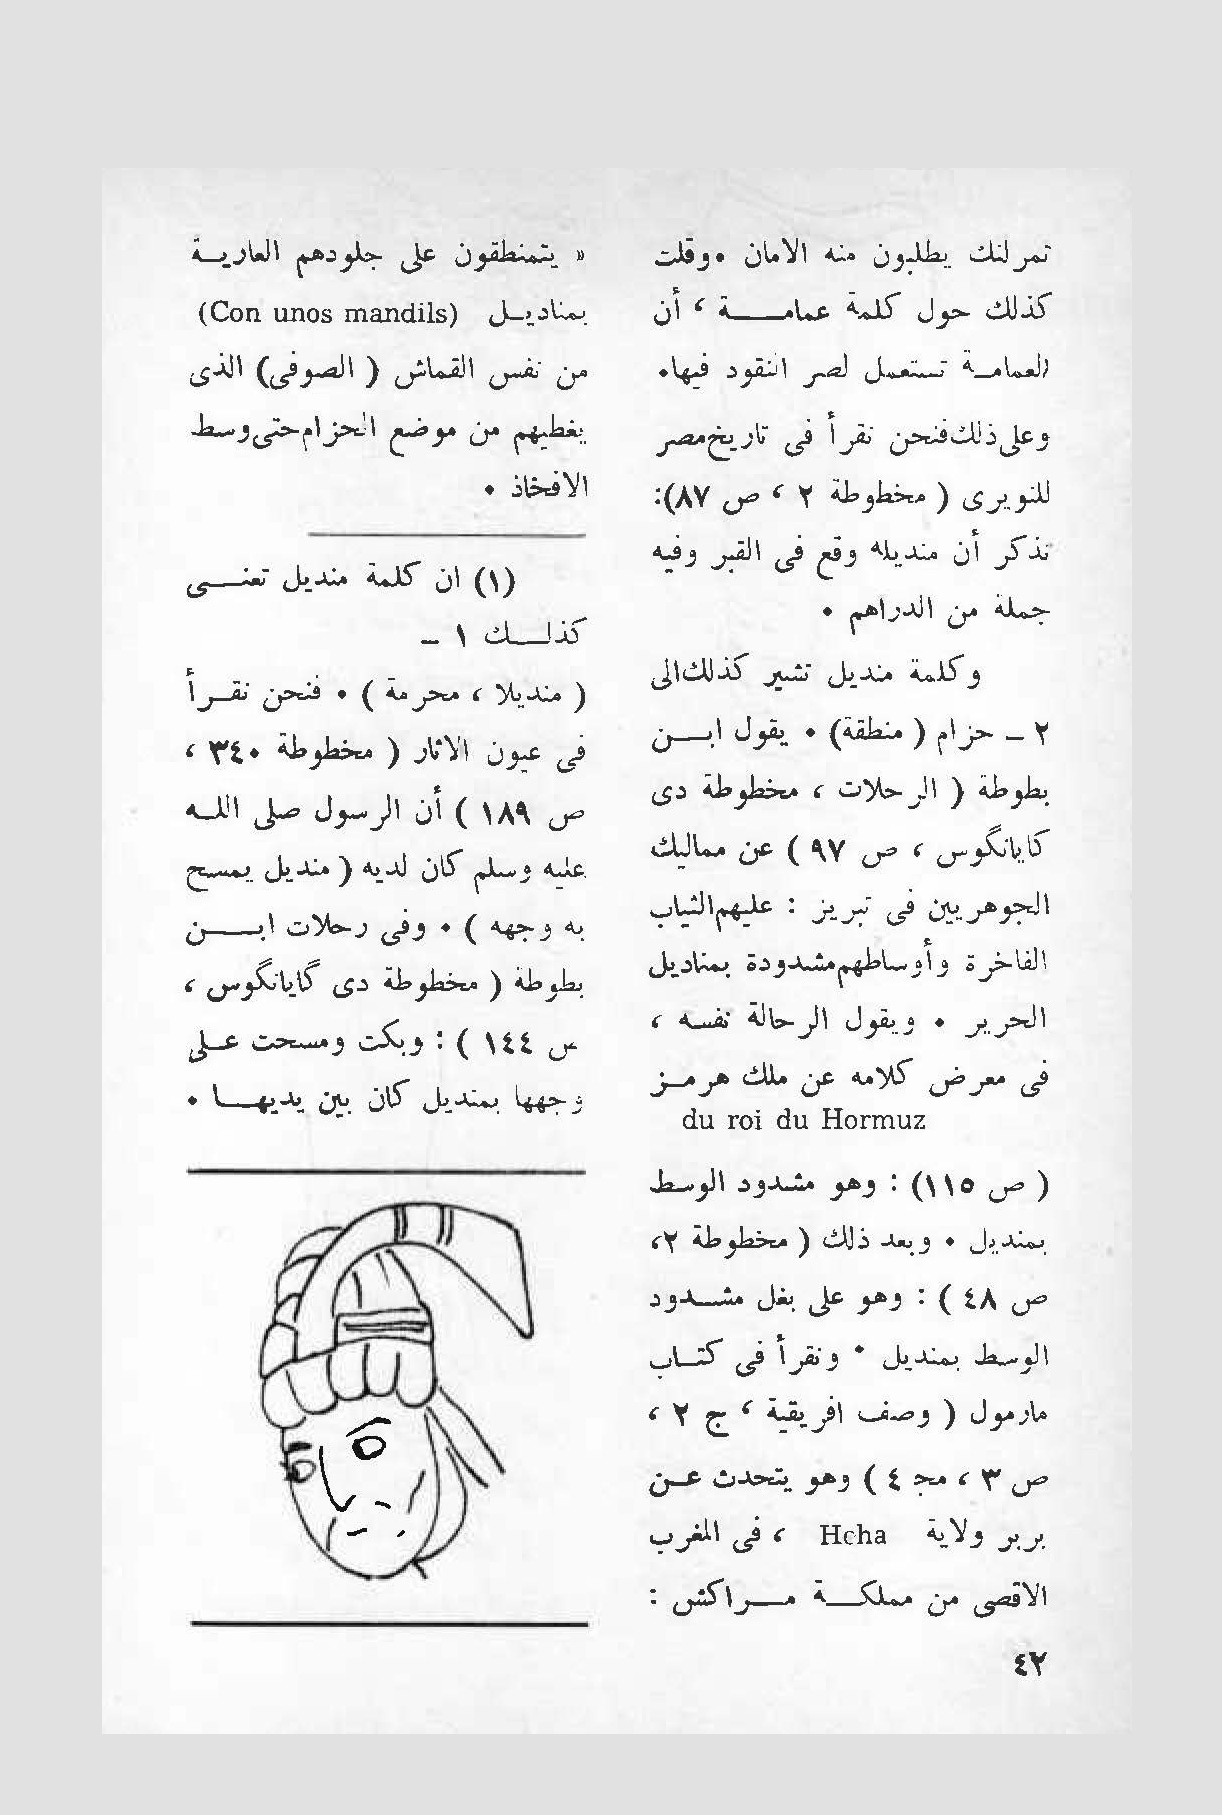 تمرلنك يطلبون منه الامان ٠وقلت
كذلك حول كلمة عمامــــة ، أن
العمامـة تستعمل لصر النقود فيها٠
وعلىذلكفنحن نقرأ فى تاريخمصر
للنويرى ( مخطوطة ٢ ، ص ٨٧):
تذكر أن منديله وقع فى القبر وفيه
جملة من الدراهم ٠
وكلمة منديل تشير كذلكالى
٢ ــ حزام ( منطقة) ٠ يقول ابـــن
بطوطة ( الرحلات ، مخطوطة دى
كايانگوس ، ص ٩٧ ) عن مماليك
الجوهريين فى تبريز : عليهمالثياب
الفاخرة وأوساطهممشدودة بمناديل
الحرير ٠ ويقول الرحالة نفسه ،
فى معرض كلامه عن ملك هرمـز
du roi du Hormuz
( ص ١١٥) : وهو مشدود الوسط
بمنديل ٠ وبعد ذلك ( مخطوطة ٢،
ص ٤٨ ) : وهو على بغل مشــدود
الوسط بمنديل ٠ ونقرأ فى كتـاب
مارمول ( وصف افريقية ، ج ٢ ،
ص ٣ ، مج ٤ ) وهو يتحدث عـن
بربر ولاية Hcha ، فى المغرب
الاقصى من مملكــة مـــراكش :
« يتمنطقون على جلودهم العاريـة
بمناديـل (Con unos mandils)
من نفس القماش ( الصوفى) الذى
يغطيهم من موضع الحزامحتىوسط
الافخاذ ٠
(١) ان كلمة منديل تعنــى
كذلــك ١ ــ
( منديلا ، محرمة ) ٠ فنحن نقـرأ
فى عيون الاثار ( مخطوطة ٣٤٠ ،
ص ١٨٩ ) أن الرسول صلى اللـه
عليه وسلم كان لديه ( منديل يمسح
به وجهه ) ٠ وفى رحلات ابـــن
بطوطة ( مخطوطة دى گايانگوس ،
ص ١٤٤ ) : وبكت ومسحت علـى
وجهها بمنديل كان بين يديهــا ٠
٤٢